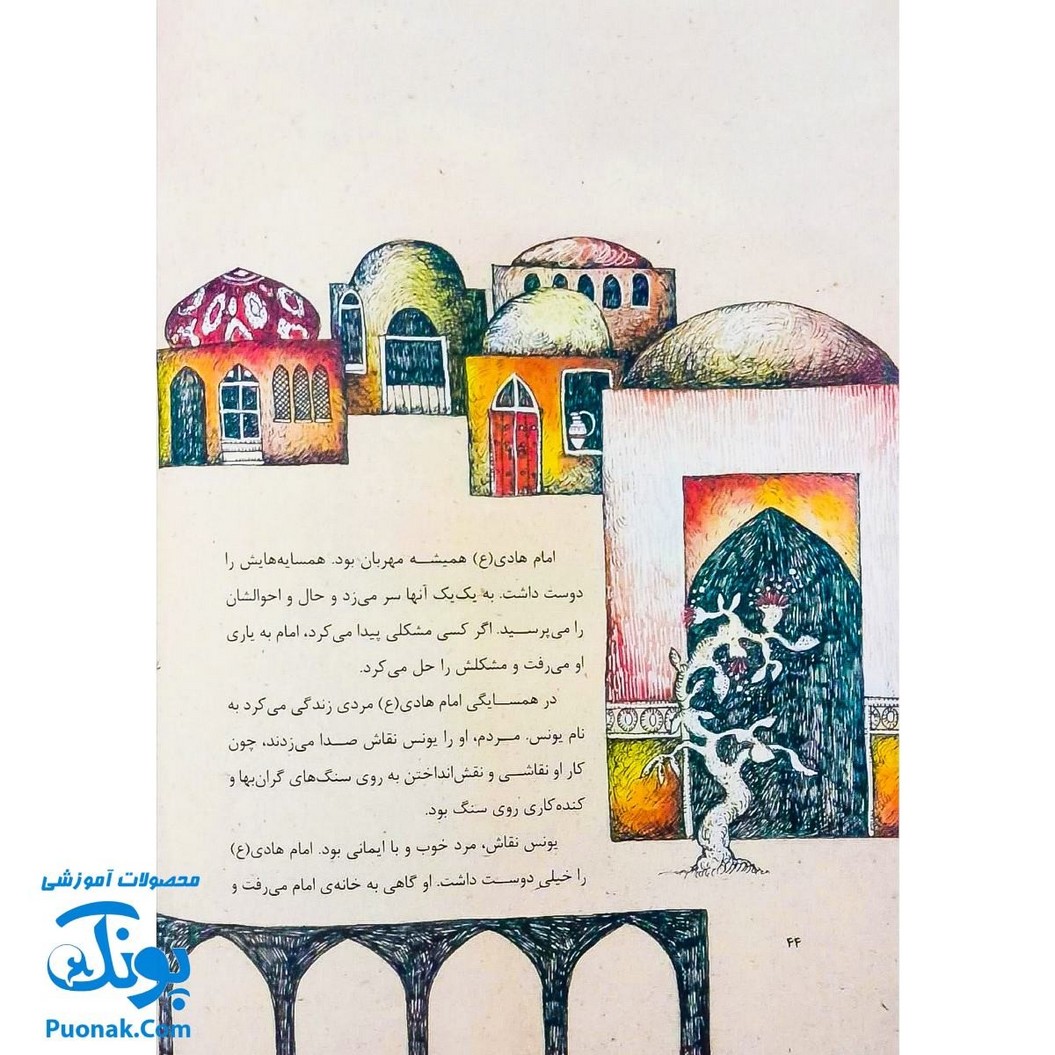 امام هادی(ع) همیشه مهربان بود. همسایه‌هایش را
دوست داشت. به یک‌یک آنها سر می‌زد و حال و احوالشان
را می‌پرسید. اگر کسی مشکلی پیدا می‌کرد، امام به یاری
او می‌رفت و مشکلش را حل می‌کرد.
در همسایگی امام هادی(ع) مردی زندگی می‌کرد به
نام یونس. مردم، او را یونس نقاش صدا می‌زدند، چون
کار او نقاشی و نقش‌انداختن به روی سنگ‌های گران‌بها و
کنده‌کاری روی سنگ بود.
یونس نقاش، مرد خوب و با ایمانی بود. امام هادی(ع)
را خیلی دوست داشت. او گاهی به خانه‌ی امام می‌رفت و
۴۴
محصولات آموزشی
پونک
Puonak.Com